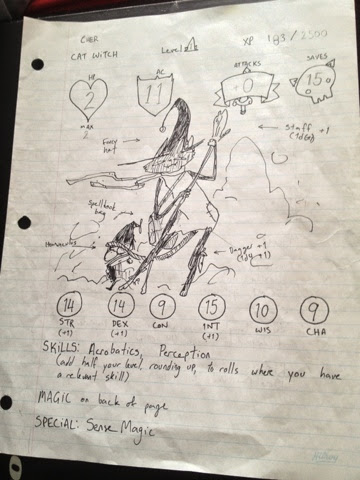 CHER
CAT WITCH
Level 1
XP 183/2500
HP
2
MAX
2
AC
11
ATTACKS
+0
SAVES
15
Fancy hat
Staff +1
(1d6) +1
Spellbook bag
Homunculus
Dagger +1
(1d4 +1)
14 14 9 15 10 9
STR DEX CON INT WIS CHA
(+1) (+1) (+1)
SKILLS: Acrobatics, Perception
(add half your level, rounding up, to rolls where you have
a relevant skill)
MAGIC on back of page
SPECIAL: Sense Magic
Hilroy